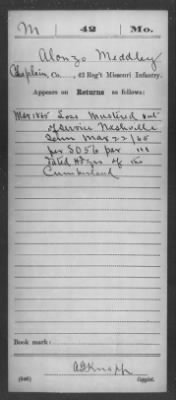 M 42 Mo.
Alonzo Meddley
Chaplain, Co. ......, 42 Reg't Missouri Infantry.
Appears on Returns as follows:
Mar 1865 Loss Mustered out
of service Nashville
Tenn Mar 22/65
per SO 56 par
dated Hdqrs of the
Cumberland
Book mark:
A D Knapp
(546) Copyist.